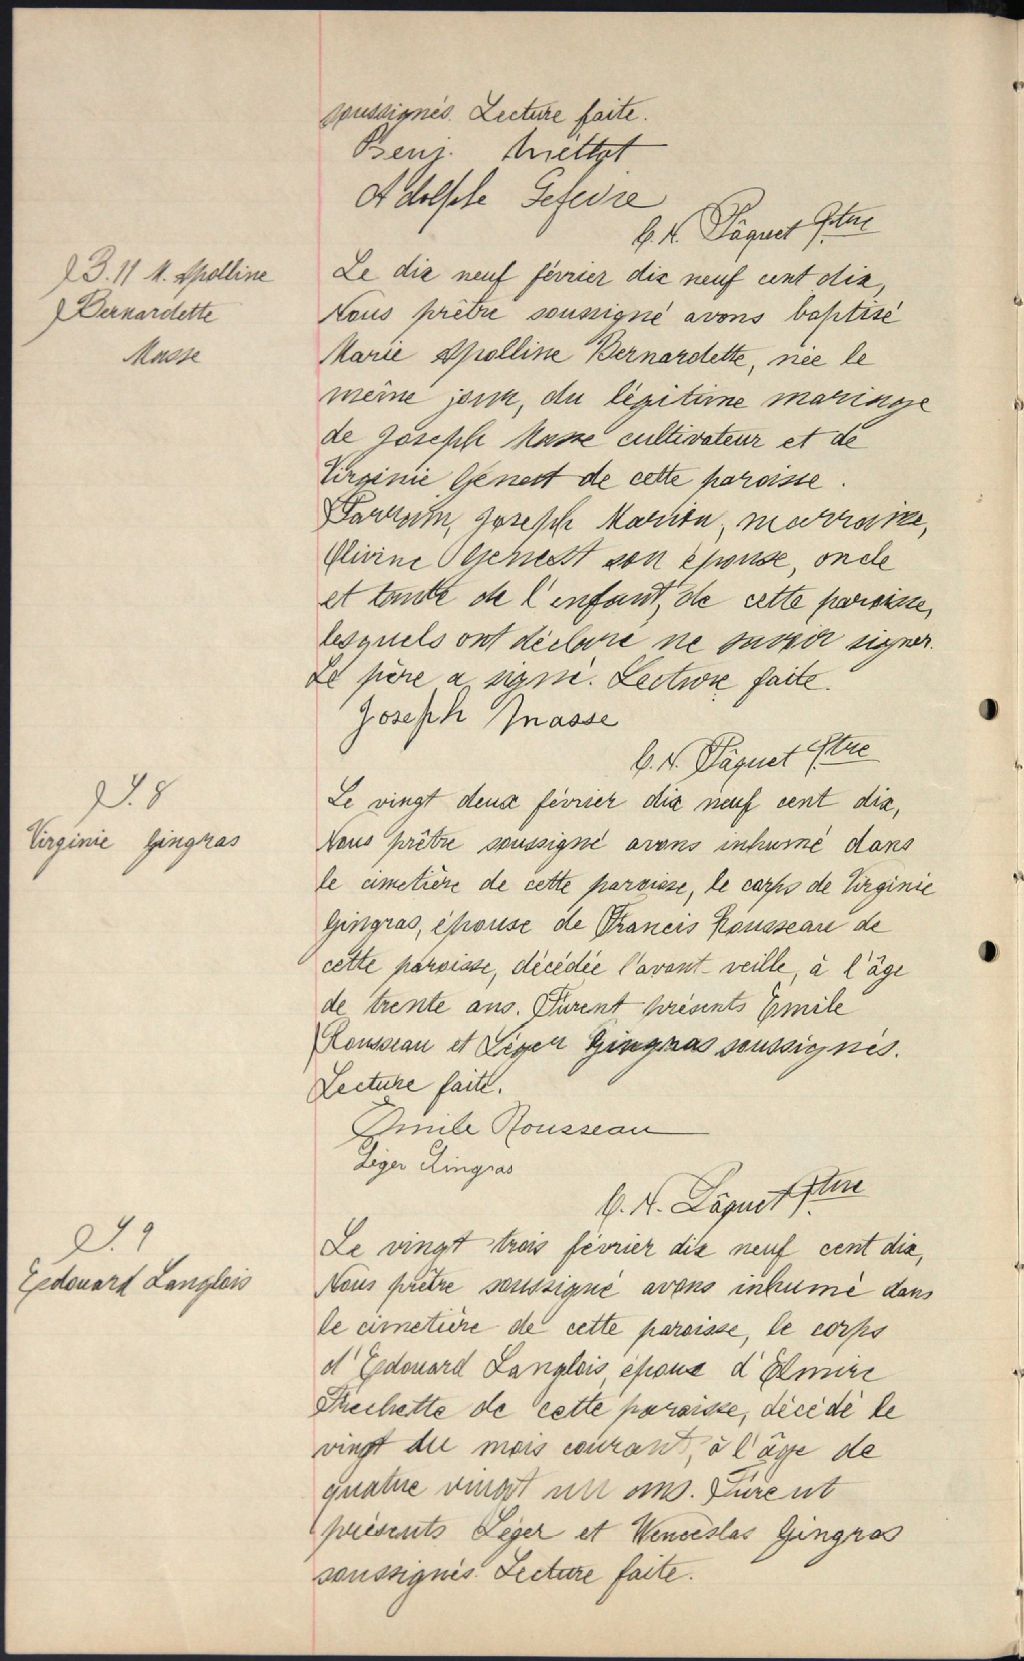 soussignés. Lecture faite.
Benj. Méttot
Adolphe Lefevre
C. N. Pâquet Ptre
B. 11 M. Apolline
Bernardette
Masse
Le dix neuf février dix neuf cent dix,
Nous prêtre soussigné avons baptisé
Marie Apolline Bernardette, née le
même jour, du légitime mariage
de Joseph Masse cultivateur et de
Virginie Genest de cette paroisse.
Parrain, Joseph Marion, marraine,
Olivine Genest son épouse, oncle
et tante de l'enfant, de cette paroisse,
lesquels ont déclaré ne savoir signer.
Le père a signé. Lecture faite.
Joseph Masse
C. N. Pâquet Ptre
S. 8
Virginie Gingras
Le vingt deux février dix neuf cent dix,
Nous prêtre soussigné avons inhumé dans
le cimetière de cette paroisse, le corps de Virginie
Gingras, épouse de Francis Rousseau de
cette paroisse, décédée l'avant-veille, à l'âge
de trente ans. Furent présents Emile
Rousseau et Léger Gingras soussignés.
Lecture faite.
Emile Rousseau
Léger Gingras
C. N. Pâquet Ptre
S. 9
Edouard Langlois
Le vingt trois février dix neuf cent dix,
Nous prêtre soussigné avons inhumé dans
le cimetière de cette paroisse, le corps
d'Edouard Langlois, époux d'Elmire
Frechette de cette paroisse, décédé le
vingt du mois courant, à l'âge de
quatre vingt un ans. Furent
présents Léger et Wenceslas Gingras
soussignés. Lecture faite.